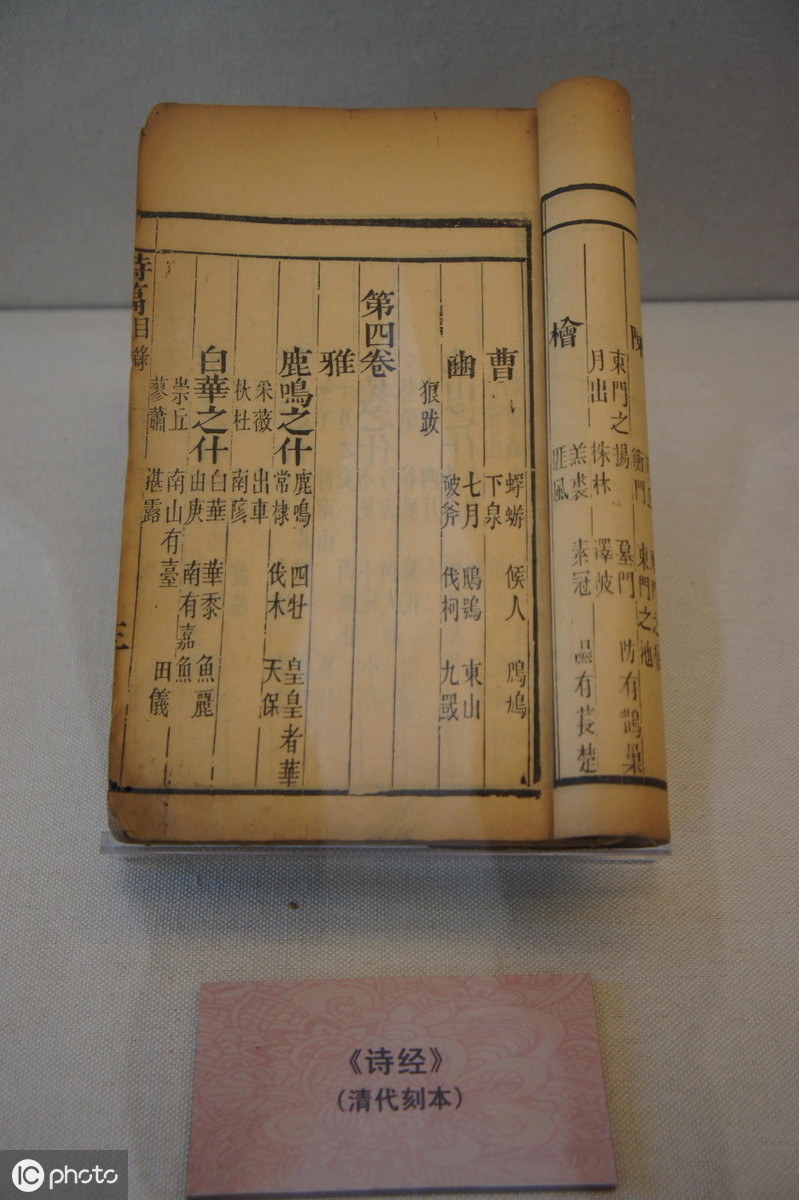 衡門 東門之池
東門之楊 墓門 防有鵲巢
月出 株林 澤陂
檜 羔裘 素冠 有萇楚
匪風
曹 蜉蝣 候人 鳲鳩
下泉
豳 七月 鴟鴞 東山
破斧 伐柯 九罭
狼跋
第四卷
雅
鹿鳴之什 鹿鳴 四牡 皇皇者華
常棣 伐木 天保
采薇 出車
杕杜 南陔
白華之什 白華 華黍 魚麗
由庚 南有嘉魚
崇丘 南山有臺 田儀
蓼蕭 湛露
詩篇目錄 三
《诗经》
(清代刻本)
IC photo